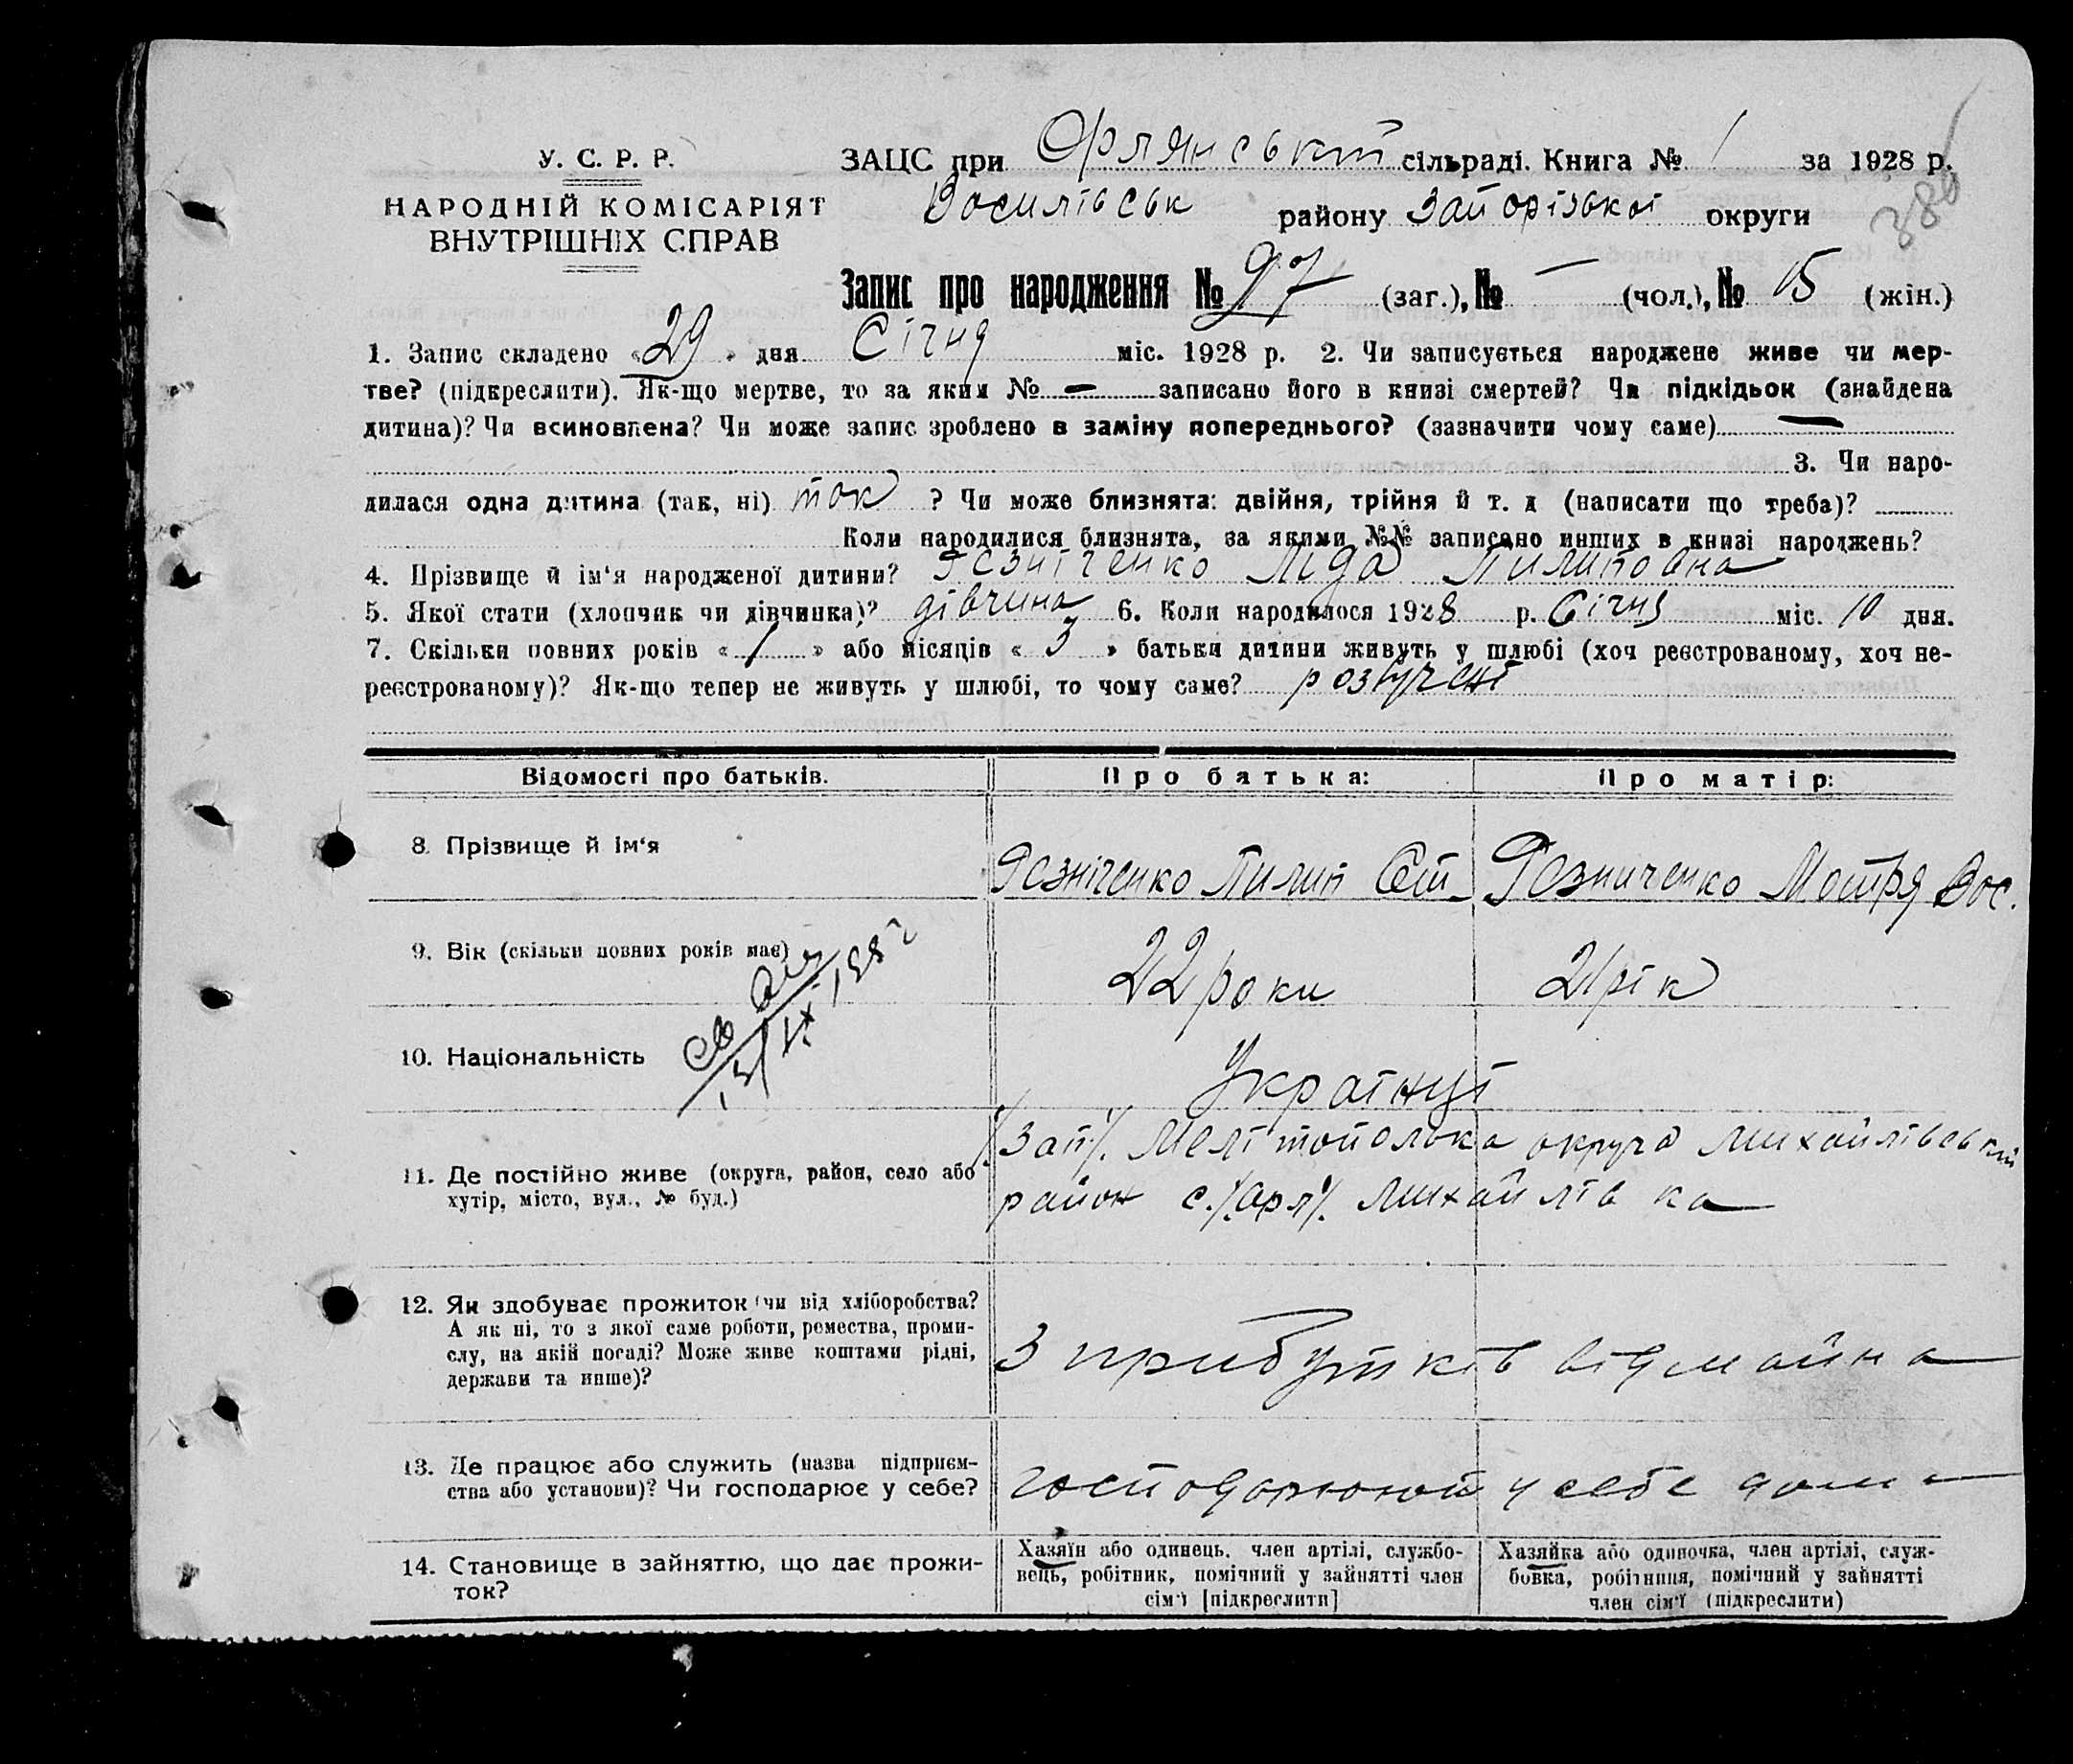 У. С. Р. Р.
НАРОДНІЙ КОМІСАРІЯТ
ВНУТРІШНІХ СПРАВ
ЗАЦС при Орлянській сільраді. Книга № 1 за 1928 р.
Василівськ району Запорізької округи
380
Запис про народження № 97 (заг.), № — (чол.), № 15 (жін.)
1. Запис складено «29» дня Січня міс. 1928 р. 2. Чи записується народжене живе чи мер-
тве? (підкреслити). Як-що мертве, то за яким № — записано його в книзі смертей? Чи підкідьок (знайдена
дитина)? Чи всиновлена? Чи може запис зроблено в заміну попереднього? (зазначити чому саме) —
3. Чи наро-
дилася одна дитина (так, ні) так ? Чи може близнята: двійня, трійня й т. д (написати що треба)?
Коли народилися близнята, за якими №№ записано инших в книзі народжень?
4. Прізвище й ім'я народженої дитини? Резніченко Ліда Пилиповна
5. Якої стати (хлопчик чи дівчинка)? дівчина 6. Коли народилося 1928 р. Січня міс. 10 дня.
7. Скільки повних років «1» або місяців «3» батьки дитини живуть у шлюбі (хоч реєстрованому, хоч не-
реєстрованому)? Як-що тепер не живуть у шлюбі, то чому саме? розлучені
Відомості про батьків. Про батька: Про матір:
8. Прізвище й ім'я
Резніченко Пилип Сем. Резниченко Мотря Вас.
9. Вік (скільки повних років має)
22 роки 21 рік
10. Національність
Українці
11. Де постійно живе (округа, район, село або
хутір, місто, вул., № буд.)
/.Зап/. Мелітопольска округа Михайлівський
район с./.Орл/. Михайлівка
12. Як здобуває прожиток (чи від хліборобства?
А як ні, то з якої саме роботи, ремества, проми-
слу, на якій посаді? Може живе коштами рідні,
держави та инше)?
З прибутків від майна
13. Де працює або служить (назва підприєм-
ства або установи)? Чи господарює у себе?
господарюют у себе дома
14. Становище в зайняттю, що дає прожи-
ток?
Хазяїн або одинець, член артілі, службо-
вець, робітник, помічний у зайнятті член
сім'ї [підкреслити]
Хазяйка або одиночка, член артілі, служ-
бовка, робітниця, помічний у зайнятті
член сім'ї (підкреслити)